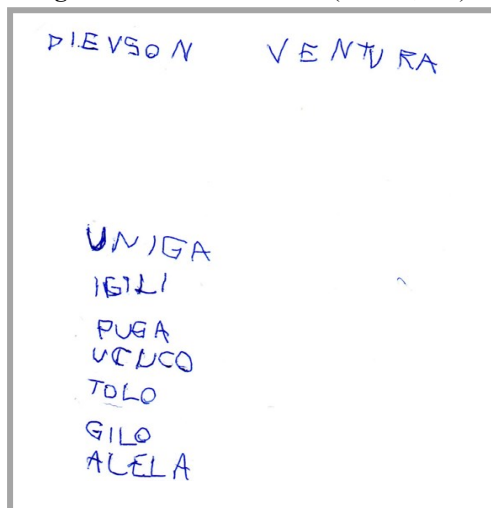 DIEVSON VENTURA
UNIGA
IGILI
PUGA
VENCO
TOLO
GILO
ALELA